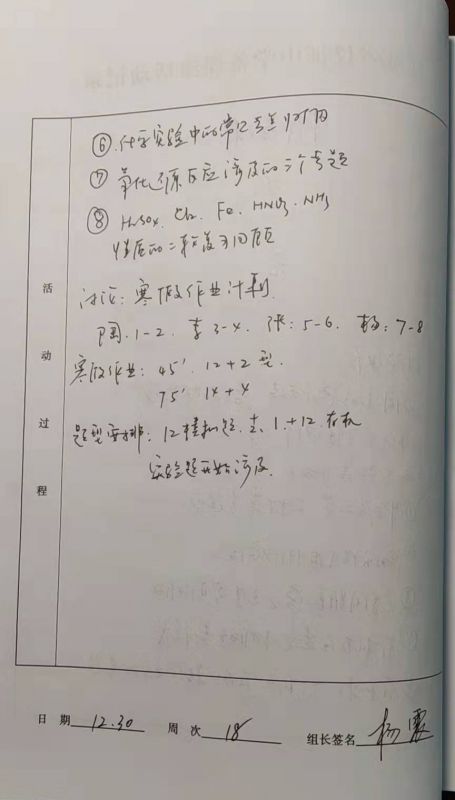 ⑥ 化学实验中的常见考点归纳
⑦ 氧化还原反应涉及的三个专题
⑧ H2SO4. Cl2. Fe. HNO3. NH3
性质的二轮复习回顾
讨论: 寒假作业计划
陶. 1-2. 李 3-4. 张: 5-6. 杨: 7-8
寒假作业: 45'. 12+2 型.
75' 14+4
题型安排: 12模拟题. 1.+12. 有机
实验题开始涉及.
活动过程
日 期 12.30 周 次 18 组长签名 杨